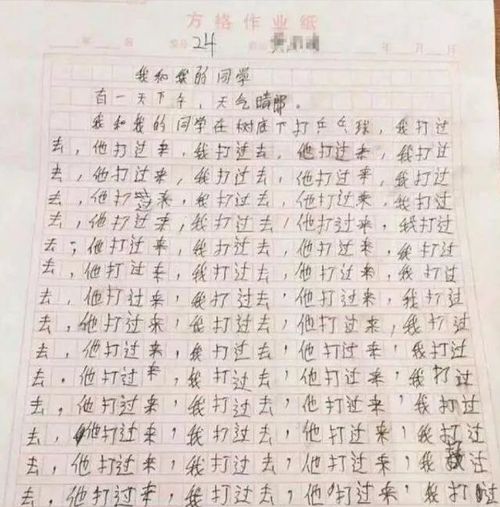 方格作业纸
年 24 年 月 日
我和我的同学
有一天下午，天气晴朗。
我和我的同学在树底下打乒乓球，我打过
去，他打过来，我打过去，他打过来，我打过
去，他打过来，我打过去，他打过来，我打过
去，他打来，我打过去，他打过来，我打过
去，他打过来，我打过去，他打过来，我打过
去，他打过来，我打过去，他打过来，我打过
去，他打过来，我打过去，他打过来，我打过
去，他打过来，我打过去，他打过来，我打过
去，他打过来，我打过去，他打过来，我打过
去，他打过来，我打过去，他打过来，我打过
去，他打过来，我打过去，他打过来，我打过
去，他打过来，我打过去，他打过来，我打过
去，他打过来，我打过去，他打过来，我打过
去，他打过来，我打过去，他打过来，我
去，他打过来，我打过去，他打过来，我打过